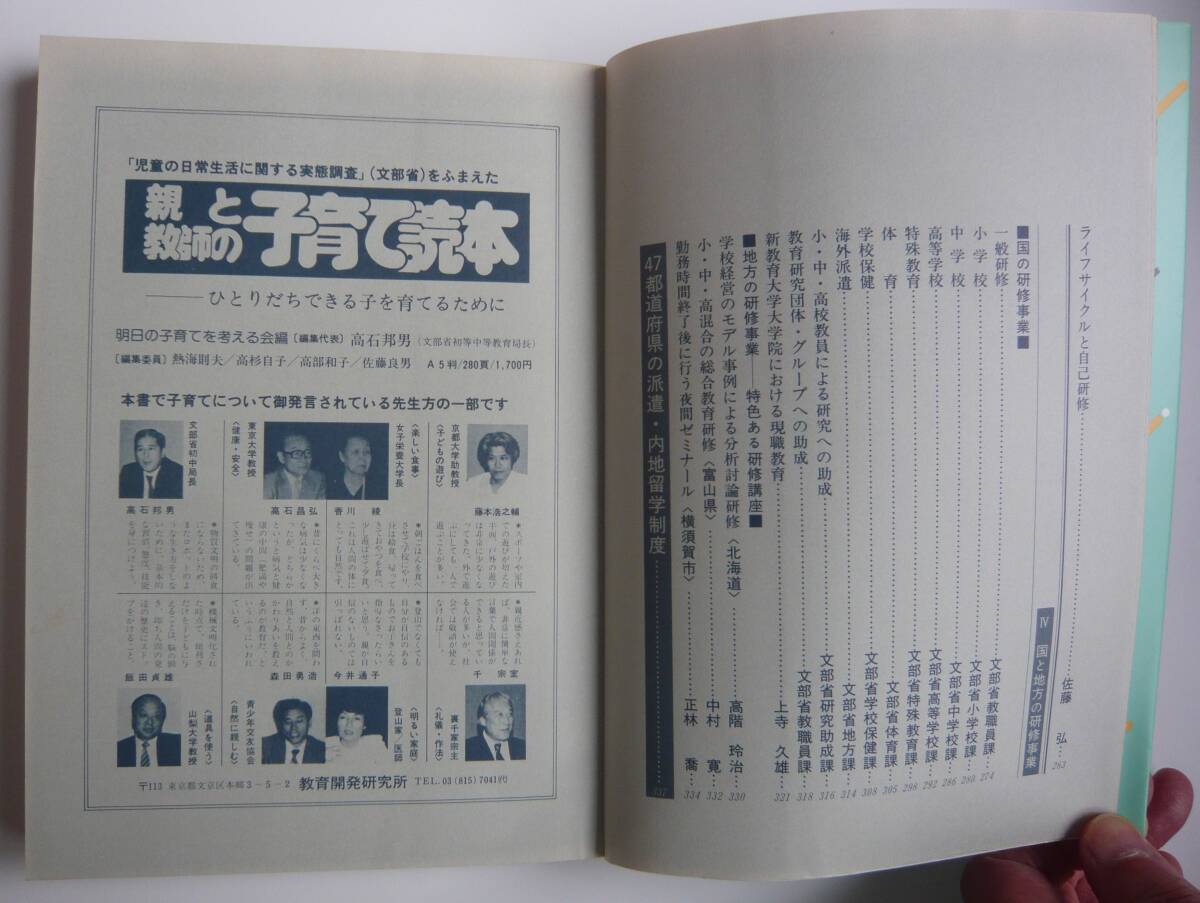 ライフサイクルと自己研修……佐藤 弘…283
Ⅳ 国と地方の研修事業
■国の研修事業■
一般研修……文部省教職員課…274
小学校……文部省小学校課…280
中学校……文部省中学校課…286
高等学校……文部省高等学校課…292
特殊教育……文部省特殊教育課…298
体育……文部省体育課…305
学校保健……文部省学校保健課…308
海外派遣……文部省地方課…314
小・中・高校教員による研究への助成……文部省研究助成課…316
教育研究団体・グループへの助成……文部省教職員課…318
新教育大学大学院における現職教育……上寺 久雄…321
■地方の研修事業――特色ある研修講座■
学校経営のモデル事例による分析討論研修〈北海道〉……高階 玲治…330
小・中・高混合の総合教育研修〈富山県〉……中村 寛…332
勤務時間終了後に行う夜間ゼミナール〈横須賀市〉……正林 喬…334
47都道府県の派遣・内地留学制度……337
「児童の日常生活に関する実態調査」(文部省)をふまえた
親と教師の子育て読本
――ひとりだちできる子を育てるために
明日の子育てを考える会編〔編集代表〕高石邦男(文部省初等中等教育局長)
〔編集委員〕熱海則夫/高杉自子/高部和子/佐藤良男 A5判/280頁/1,700円
本書で子育てについて御発言されている先生方の一部です
京都大学助教授
〈子どもの遊び〉
藤本浩之輔
女子栄養大学長
〈楽しい食事〉
香川 綾
東京大学教授
〈健康・安全〉
高石昌弘
文部省初中局長
高石邦男
千 宗室
裏千家宗主
〈礼儀・作法〉
今井通子
登山家・医師
〈明るい家庭〉
森田勇造
青少年交友協会
〈自然に親しむ〉
飯田貞雄
山梨大学教授
〈道具を使う〉
〒113 東京都文京区本郷3-5-2 教育開発研究所 TEL.03(815)7041代